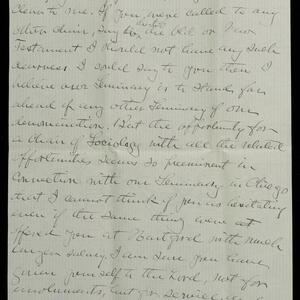 clear to me. If you were called to any
other chair, say to the Old or New
Testament I should not have any such
clearness. I could say to you then I
believe our Seminary is to stand far
ahead of any other Seminary of our
denomination. But the opportunity for
a chair of Sociology with all the related
opportunities seems so preeminent in
connection with our Seminary in Chicago
that I cannot think of you as hesitating
even if the same thing were
offered you at Hartford with much
larger salary. I am sure you have
given yourself to the Lord, not for
emoluments, but for service